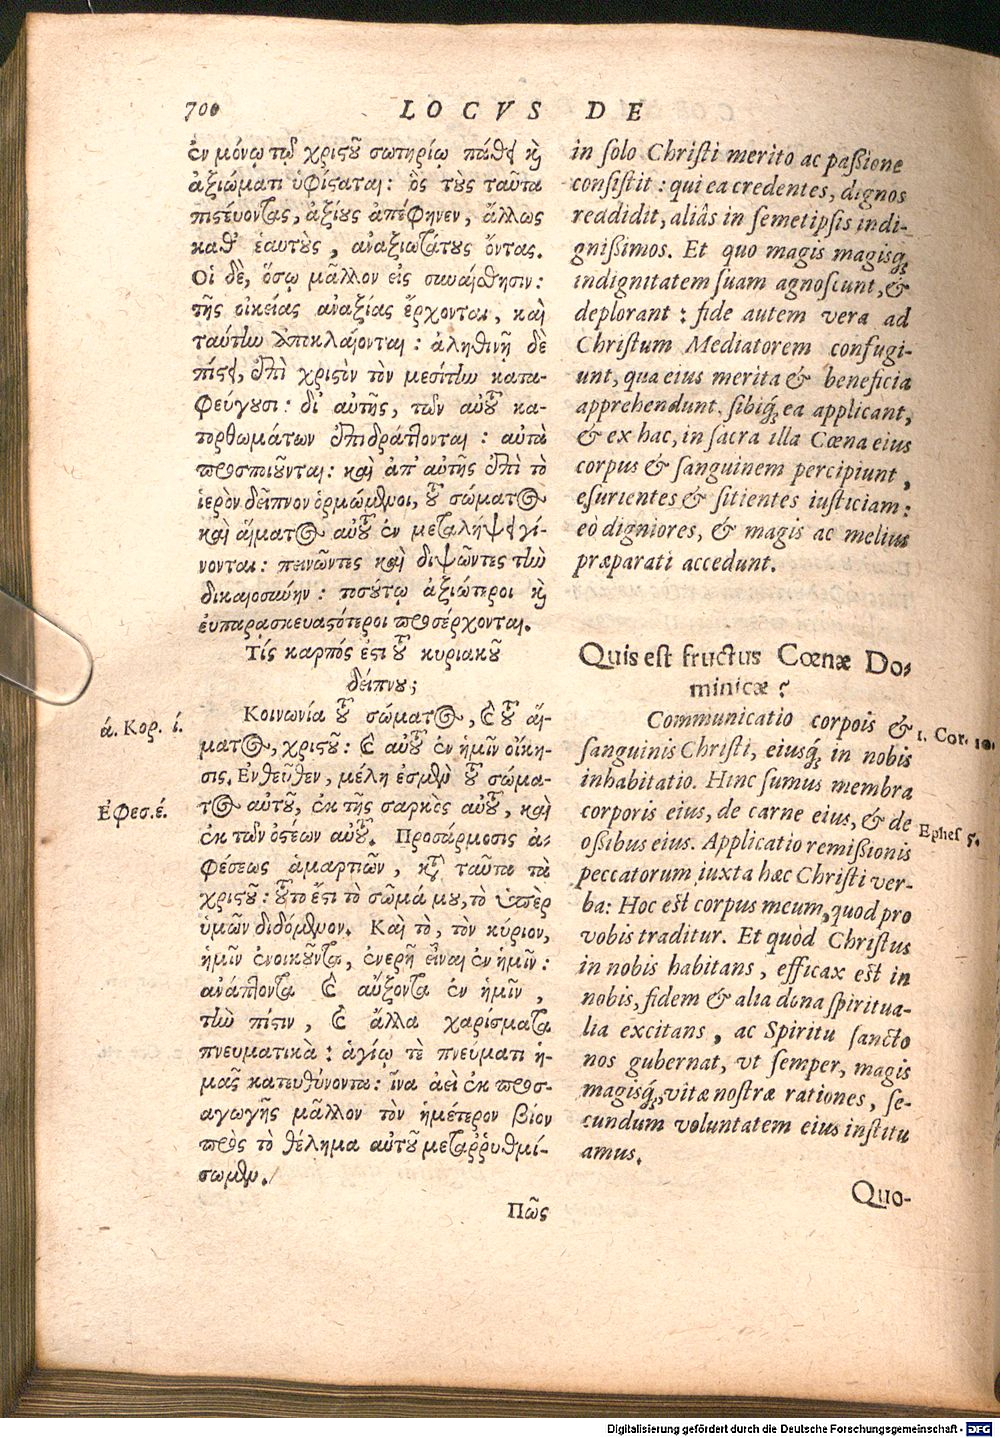 700
LOCVS DE
ἐν μόνῳ τῷ χριστοῦ σωτηρίῳ πάθει καὶ
ἀξιώματι ὑφίσταται: ὃς τοὺς ταῦτα
πιστεύοντας, ἀξίους ἀπέφηνεν, ἄλλως
καθ' ἑαυτοὺς, ἀναξιωτάτους ὄντας.
Οἱ δὲ, ὅσῳ μᾶλλον εἰς συναίσθησιν:
τῆς οἰκείας ἀναξίας ἔρχονται, καὶ
ταύτην ἀποκλαίονται: ἀληθινῇ δὲ
πίστει, ἐπὶ χριστὸν τὸν μεσίτην κατα-
φεύγουσι: δι' αὐτῆς, τῶν αὐτοῦ κα-
τορθωμάτων ἐπιδράττονται: αὐτὰ
προσποιοῦνται: καὶ ἀπ' αὐτῆς ἐπὶ τὸ
ἱερὸν δεῖπνον ὁρμώμενοι, τοῦ σώματος
καὶ αἵματος αὐτοῦ ἐν μεταλήψει γί-
νονται: πεινῶντες καὶ διψῶντες τὴν
δικαιοσύνην: τοσούτῳ ἀξιώτεροι καὶ
ἐυπαρασκευαστότεροι προσέρχονται.
Τίς καρπός ἐστι τοῦ κυριακοῦ
δείπνου;
Κοινωνία τοῦ σώματος, καὶ τοῦ αἵ-
ματος, χριστοῦ: καὶ αὐτοῦ ἐν ἡμῖν οἴκη-
σις. Ἐνθεῦθεν, μέλη ἐσμὲν τοῦ σώμα-
τος αὐτοῦ, ἐκ τῆς σαρκὸς αὐτοῦ, καὶ
ἐκ τῶν ὀστέων αὐτοῦ. Προσάρμοσις ἀ-
φέσεως ἁμαρτιῶν, κατὰ ταῦτα τὰ
χριστοῦ: τοῦτο ἔστι τὸ σῶμά μου, τὸ ὑπὲρ
ὑμῶν διδόμενον. Καὶ τὸ, τὸν κύριον,
ἡμῖν ἐνοικοῦντα, ἐνεργῆ εἶναι ἐν ἡμῖν:
ἀνάπτοντα καὶ αὔξοντα ἐν ἡμῖν,
τὴν πίστιν, καὶ ἄλλα χαρίσματα
πνευματικὰ: ἁγίῳ τὲ πνεύματι ἡ-
μᾶς κατευθύνοντα: ἵνα ἀεὶ ἐκ προσ-
αγωγῆς μᾶλλον τὸν ἡμέτερον βίον
πρὸς τὸ θέλημα αὐτοῦ μεταῤῥυθμί-
σωμεν.
Πῶς
ά. Κορ. ί.
Ἐφεσ. έ.
in solo Christi merito ac passione
consistit: qui ea credentes, dignos
reddidit, aliâs in semetipsis indi-
gnissimos. Et quo magis magisq́;
indignitatem suam agnoscunt, &
deplorant: fide autem vera ad
Christum Mediatorem confugi-
unt, qua eius merita & beneficia
apprehendunt. sibiq́; ea applicant,
& ex hac, in sacra illa Cœna eius
corpus & sanguinem percipiunt,
esurientes & sitientes iusticiam:
eò digniores, & magis ac melius
præparati accedunt.
Quis est fructus Cœnæ Do-
minicæ?
Communicatio corpois &
sanguinis Christi, eiusq́; in nobis
inhabitatio. Hinc sumus membra
corporis eius, de carne eius, & de
ossibus eius. Applicatio remissionis
peccatorum iuxta hæc Christi ver-
ba: Hoc est corpus meum, quod pro
vobis traditur. Et quòd Christus
in nobis habitans, efficax est in
nobis, fidem & alia dona spiritua-
lia excitans, ac Spiritu sancto
nos gubernat, vt semper, magis
magisq́;, vitæ nostræ rationes, se-
cundum voluntatem eius institu
amus.
Quo-
1. Cor. 10.
Ephes 5.
Digitalisierung gefördert durch die Deutsche Forschungsgemeinschaft - DFG